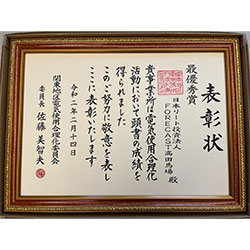 表彰状
最優秀賞
日本リート投資法人
FORECAST高田馬場 殿
貴事業所は電気使用合理化
活動において頭書の成績を
得られました
このご努力に敬意を表し
ここに表彰いたします
令和二年二月十四日
関東地区電気使用合理化委員会
委員長 佐藤美智夫